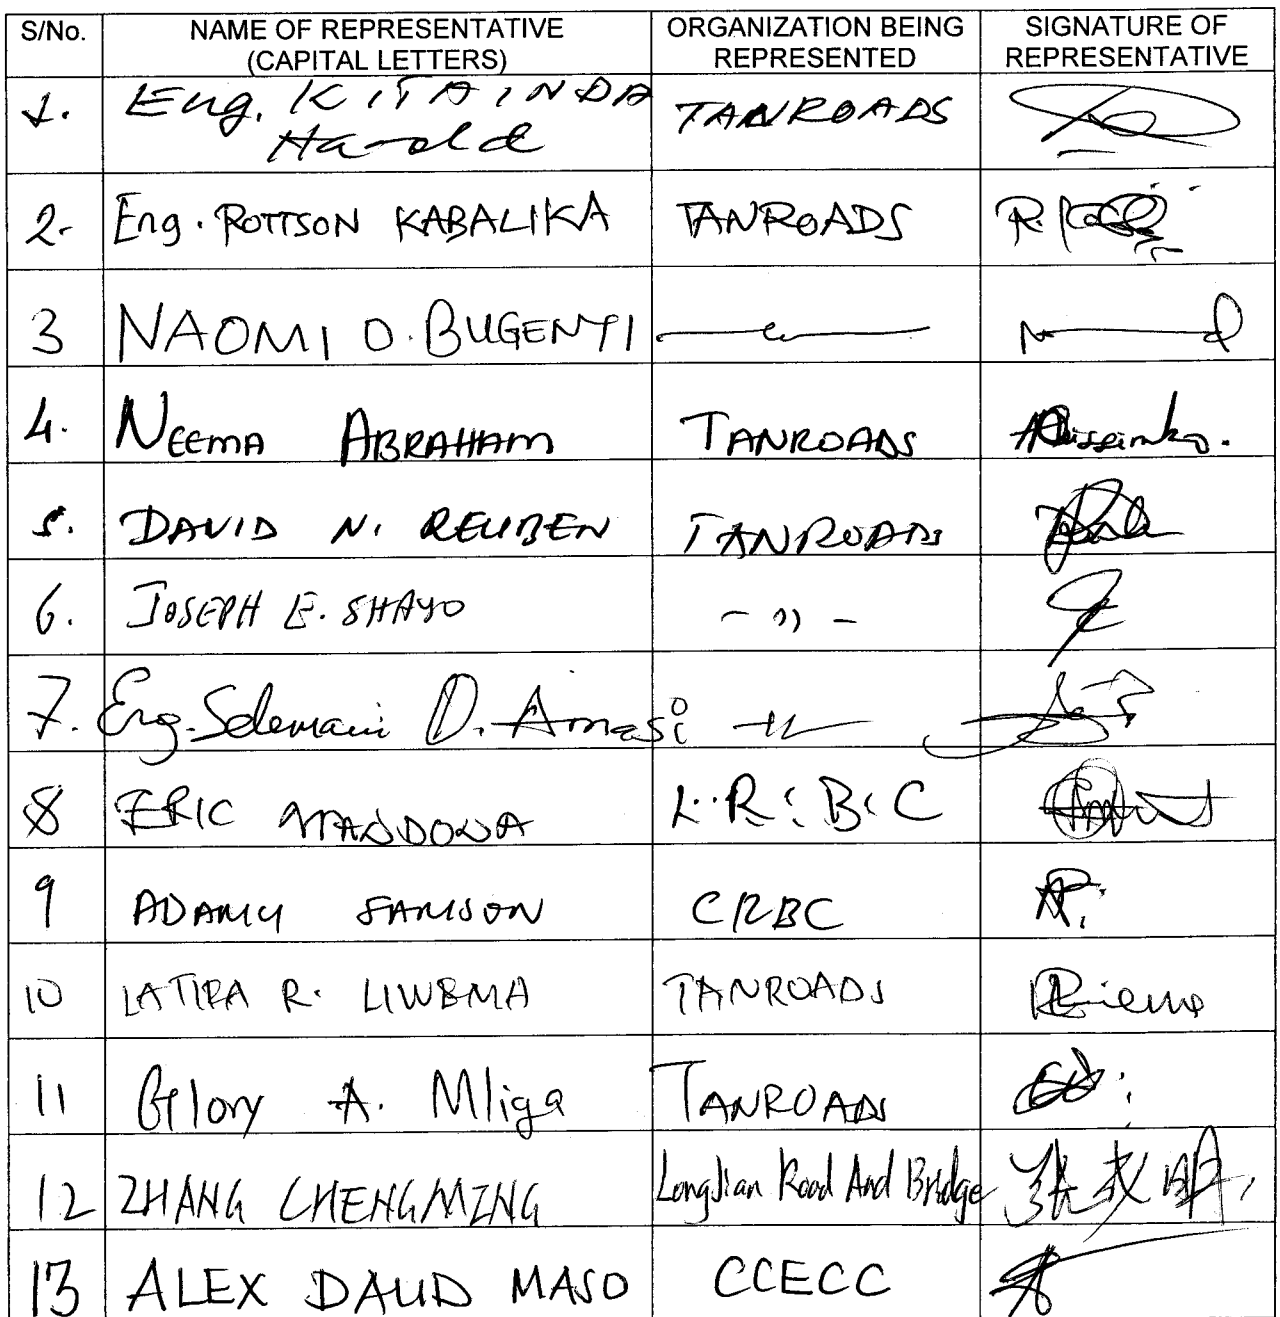 S/No. NAME OF REPRESENTATIVE (CAPITAL LETTERS) ORGANIZATION BEING REPRESENTED SIGNATURE OF REPRESENTATIVE
1. Eng. KITAINDA Harold TANROADS
2. Eng. ROTTSON KABALIKA TANROADS
3 NAOMI O. BUGENYI
4. NEEMA ABRAHAM TANROADS
5. DAVID N. REUBEN TANROADS
6. JOSEPH E. SHAYO - ,, -
7. Eng. Selemani D. Amasi - ,, -
8 ERIC L.R.B.C
9 ADAMU SAMSON CRBC
10 LATIFA R. LIWEMA TANROADS
11 Glory A. Mliga TANROADS
12 ZHANG CHENGMING LongJian Road And Bridge 张成明
13 ALEX DAUD MASO CCECC